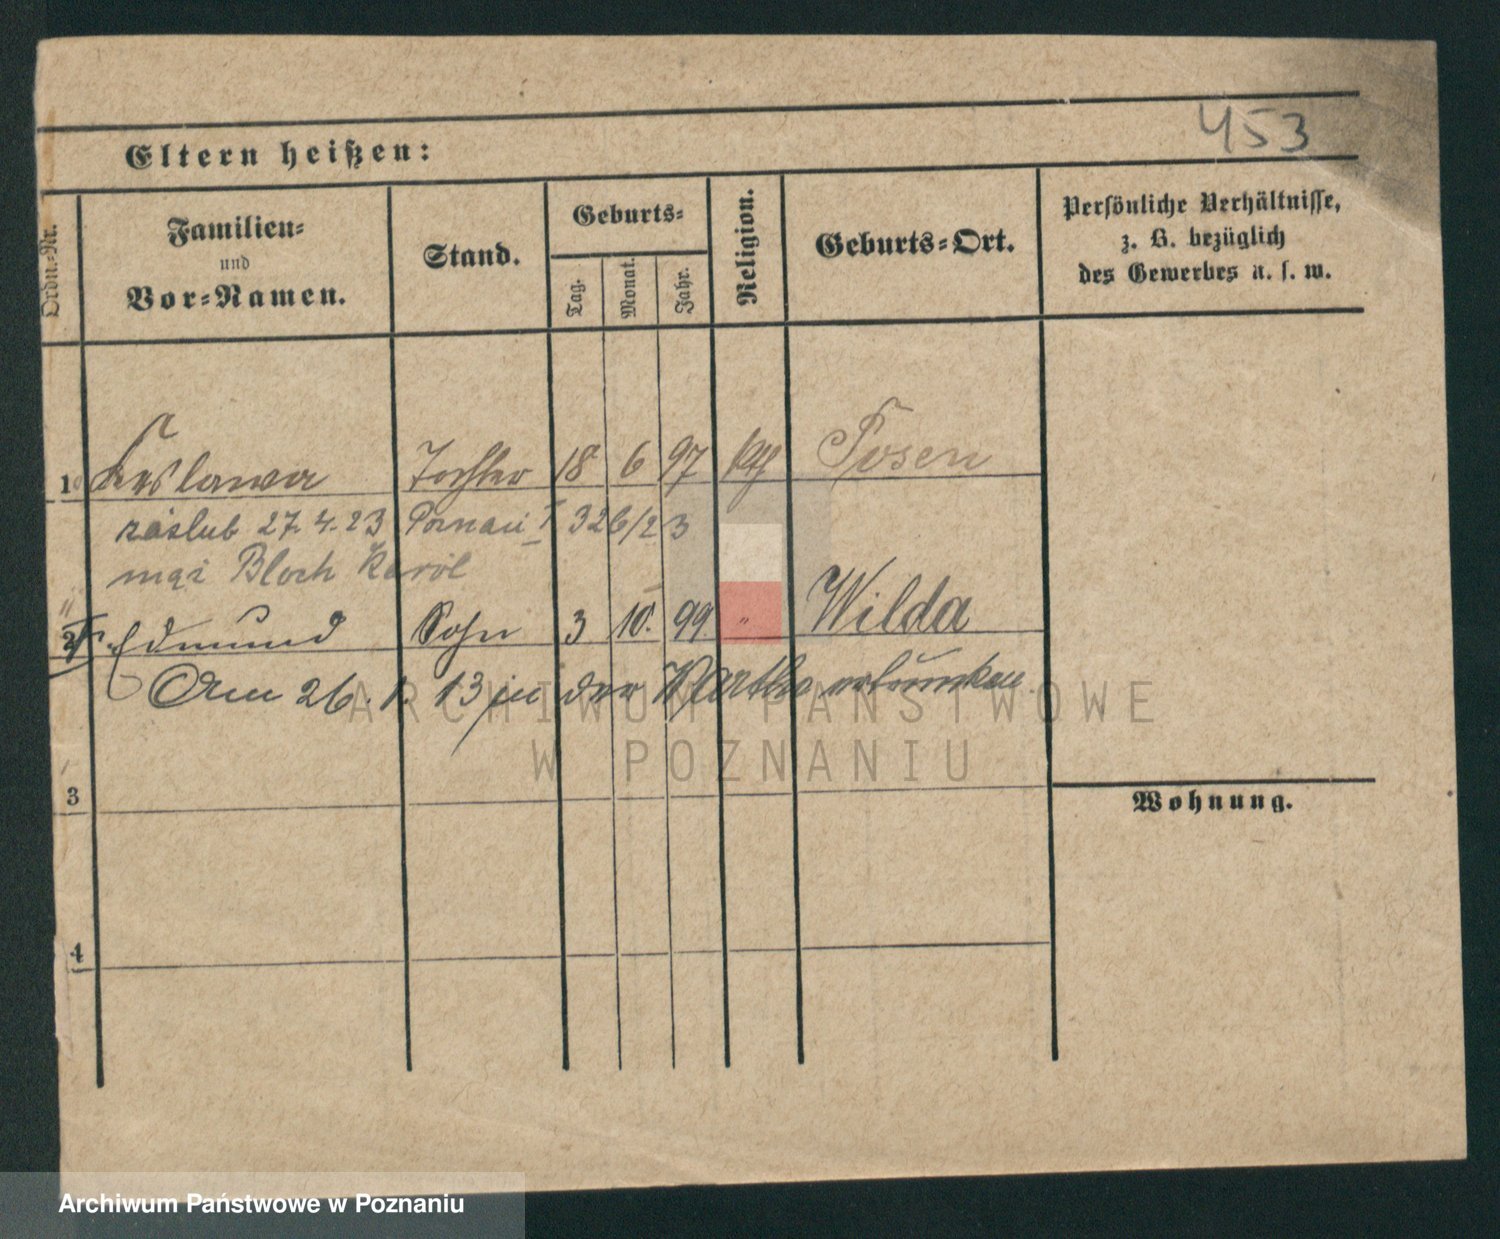 453
Eltern heißen:
Ordn.-Nr.
Familien- und Vor-Namen.
Stand.
Geburts-
Tag.
Monat.
Jahr.
Religion.
Geburts-Ort.
Persönliche Verhältnisse,
z. B. bezüglich
des Gewerbes u. s. w.
1 Tochter 18 6 97 kth Posen
zaślub 27.4.23 Poznań I 326/23
mąż Bloch Karol
2 Edmund Sohn 3 10. 99 " Wilda
Am 26. 1. 13 in der Warthe ertrunken
ARCHIWUM PAŃSTWOWE
W POZNANIU
3
Wohnung.
4
Archiwum Państwowe w Poznaniu